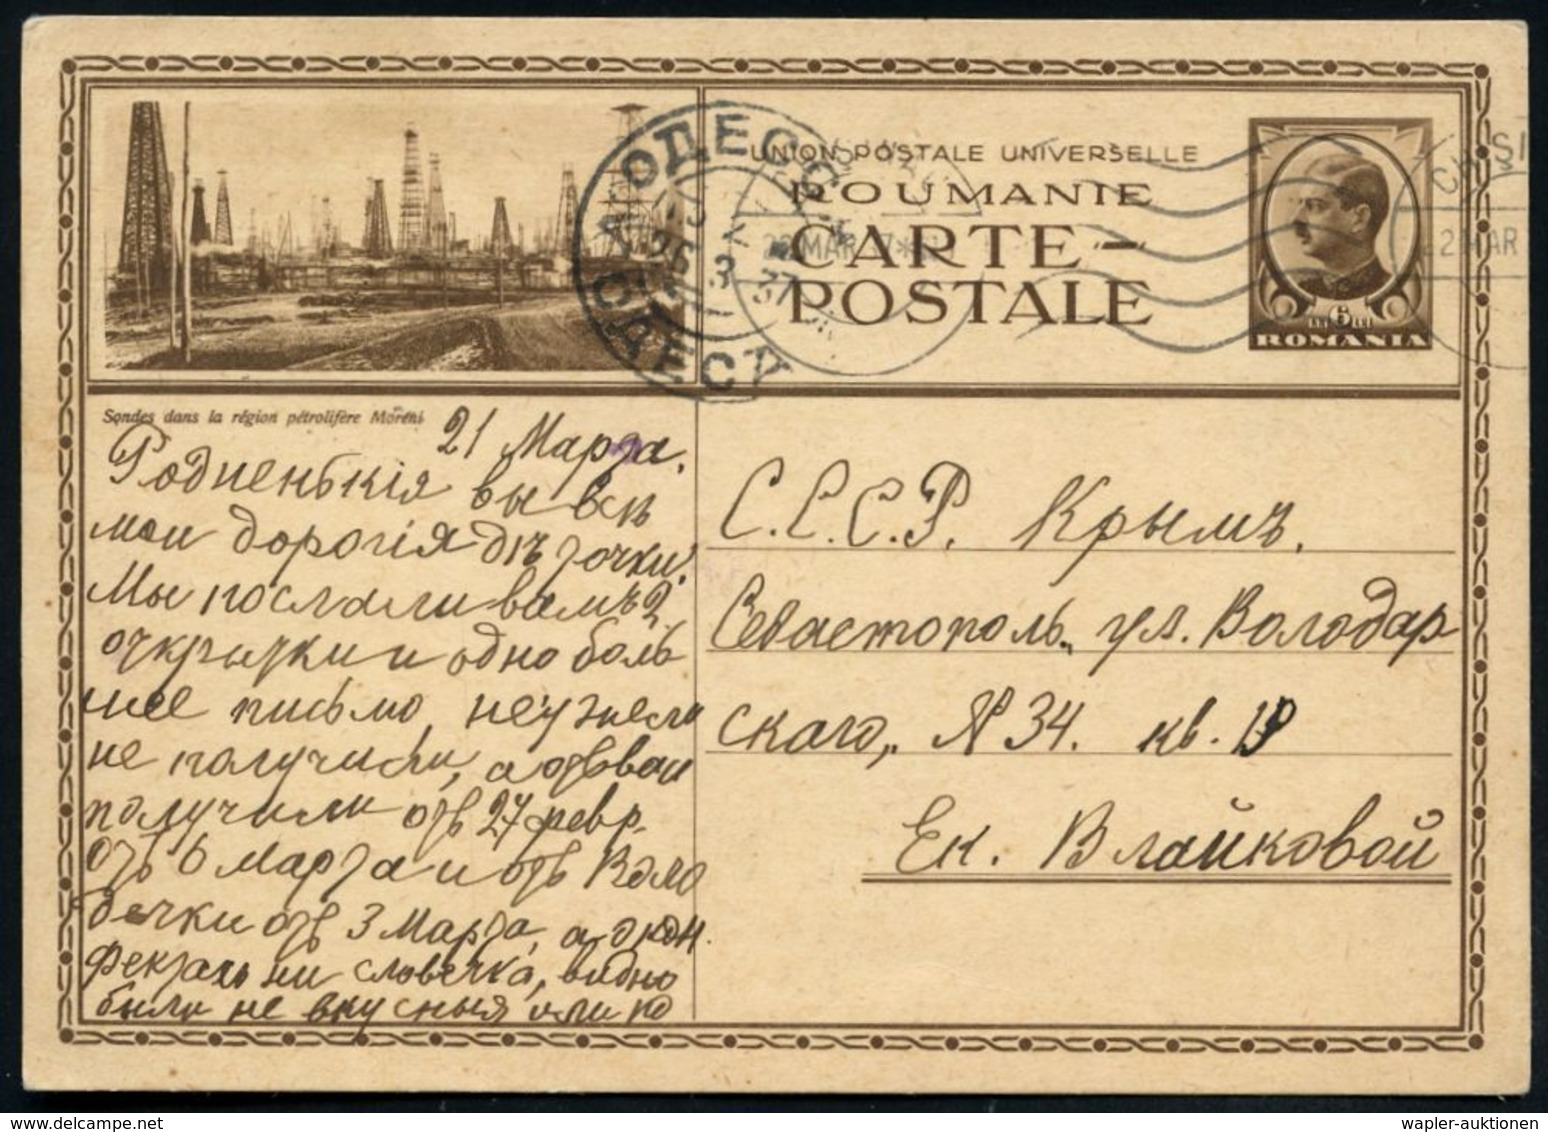 UNION POSTALE UNIVERSELLE
ROUMANIE
CARTE-
POSTALE
6
ROMANIA
ОДЕССА
ОДЕСА
26 3 37
22 MAR
Sondes dans la région pétrolifère Moreni
21 Марта.
Родненькія вы всѣ
мои дорогія дѣточки.
Мы послали вамъ 2
открытки и одно боль
шее письмо, неужели
не получили, а отъ вас
получили отъ 27 февр.
отъ 6 Марта и отъ Воло
дечки отъ 3 Марта, а о кон
фектахъ ни словечка, видно
были не вкусныя или
С.С.С.Р. Крымъ.
Севастополь, ул. Володар
скаго, № 34. кв.
Ек. Влайковой
wapler-auktionen